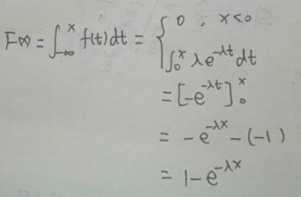 F(x) = ∫_{-∞}^{x} f(t) dt = { 0 , x<0
∫_0^x λe^{-λt} dt
= [-e^{-λt}]_0^x
= -e^{-λx} - (-1)
= 1 - e^{-λx}